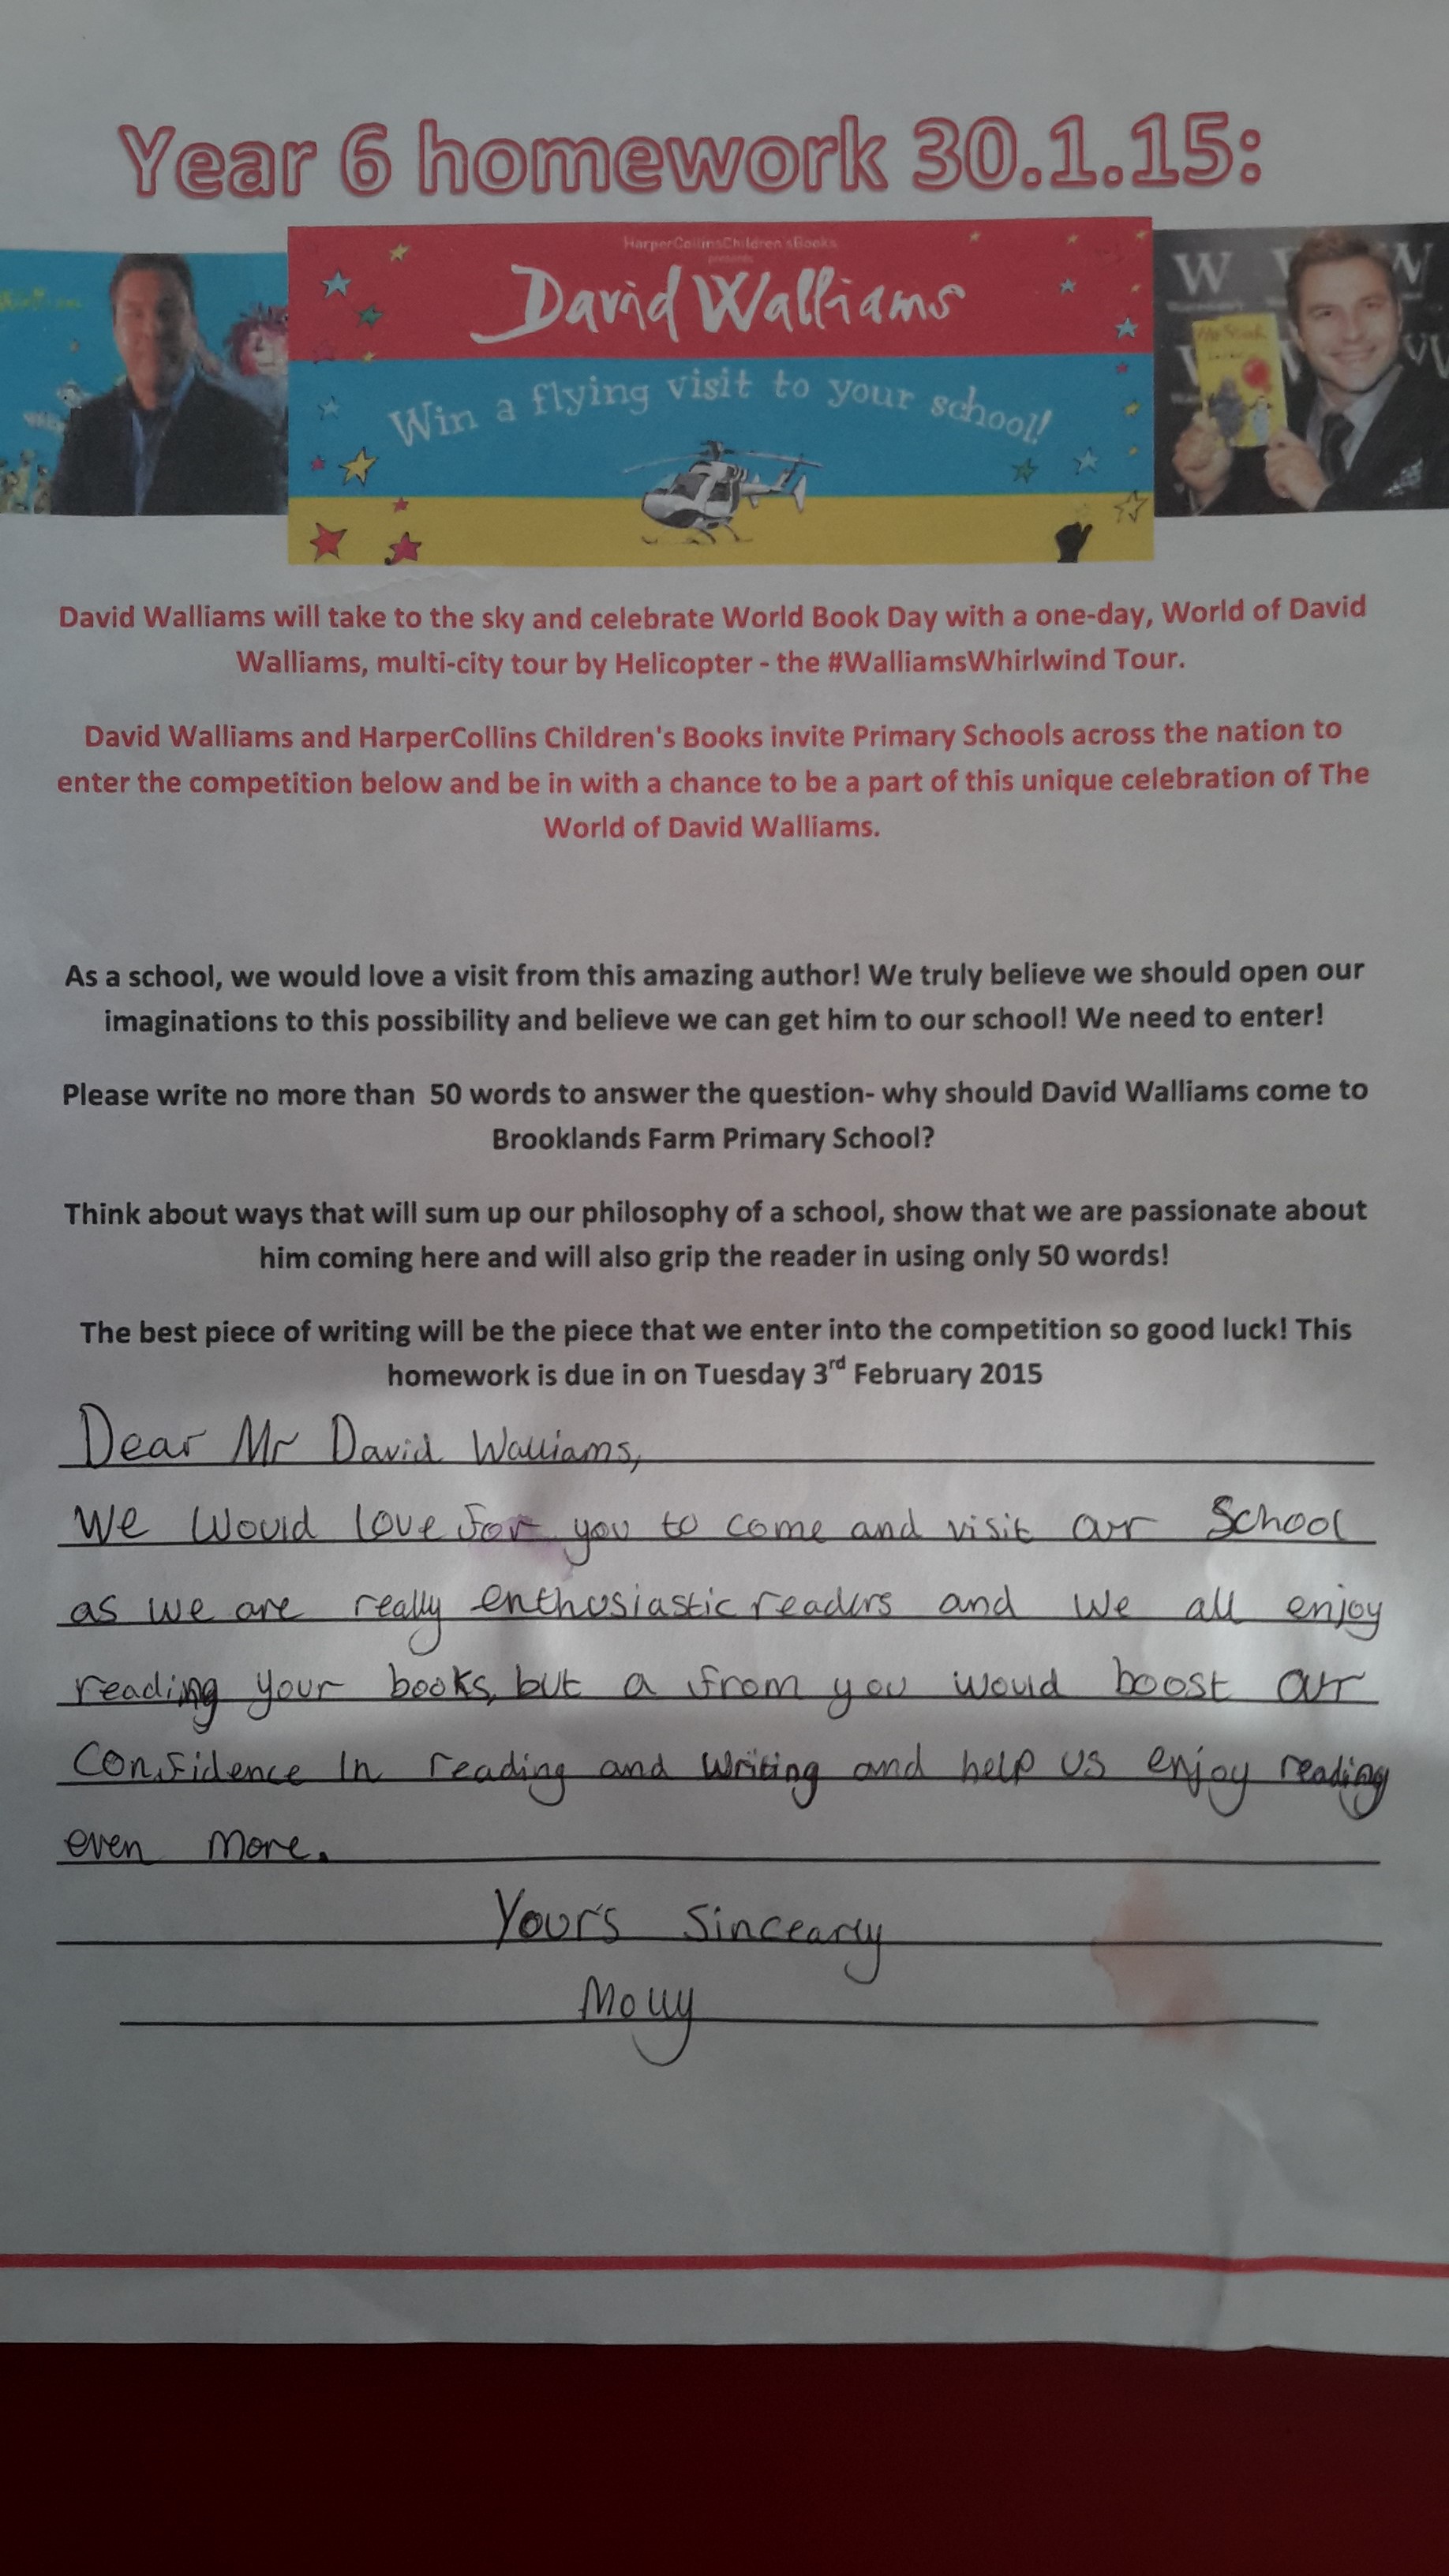 Year 6 homework 30.1.15:
HarperCollinsChildren'sBooks
presents
David Walliams
Win a flying visit to your school!
W
David Walliams will take to the sky and celebrate World Book Day with a one-day, World of David
Walliams, multi-city tour by Helicopter - the #WalliamsWhirlwind Tour.
David Walliams and HarperCollins Children's Books invite Primary Schools across the nation to
enter the competition below and be in with a chance to be a part of this unique celebration of The
World of David Walliams.
As a school, we would love a visit from this amazing author! We truly believe we should open our
imaginations to this possibility and believe we can get him to our school! We need to enter!
Please write no more than 50 words to answer the question- why should David Walliams come to
Brooklands Farm Primary School?
Think about ways that will sum up our philosophy of a school, show that we are passionate about
him coming here and will also grip the reader in using only 50 words!
The best piece of writing will be the piece that we enter into the competition so good luck! This
homework is due in on Tuesday 3rd February 2015
Dear Mr David Walliams,
We would love for you to come and visit our School
as we are really enthusiastic readers and we all enjoy
reading your books, but a from you would boost our
confidence in reading and writing and help us enjoy reading
even more.
Your's Sincearly
Molly